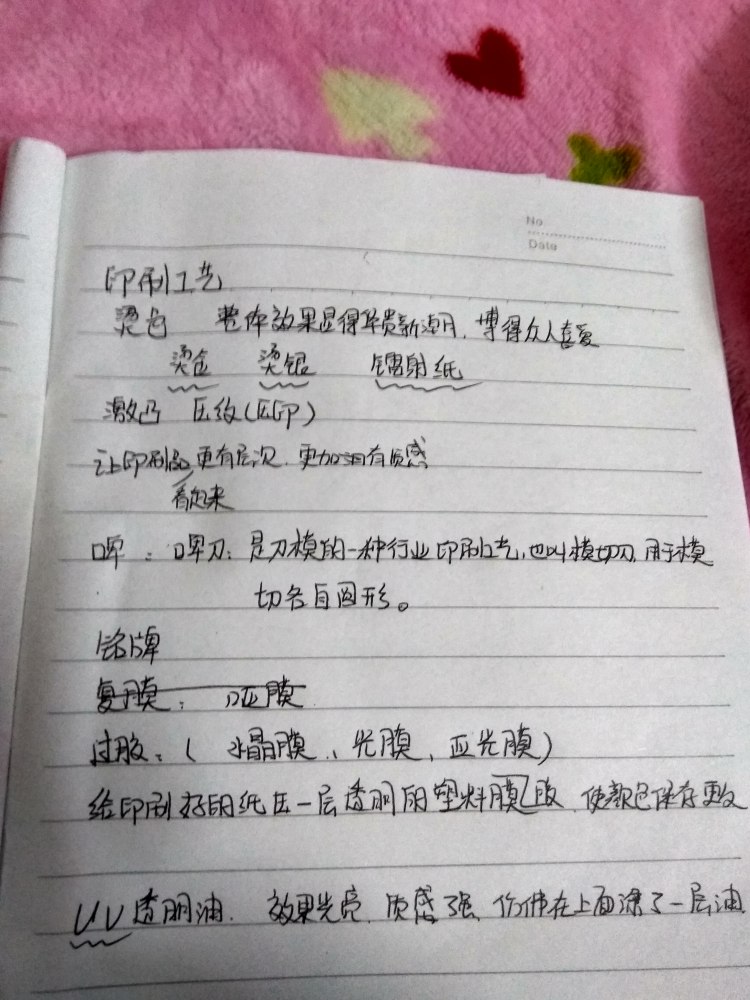 No
Date
印刷工艺
烫色 整体效果显得华贵新潮，博得众人喜爱
烫金 烫银 镭射纸
激凸 压纹（压印）
让印刷品更有层次，更加拥有质感
看起来
啤：啤刀：是刀模的一种行业印刷工艺，也叫模切刀，用于模
切各自图形。
铭牌
复膜：哑膜
过胶：（水晶膜、光膜、亚光膜）
给印刷好的纸压一层透明的塑料膜胶，使颜色保存更久
UV透明油. 效果光亮，质感强，仿佛在上面漆了一层油